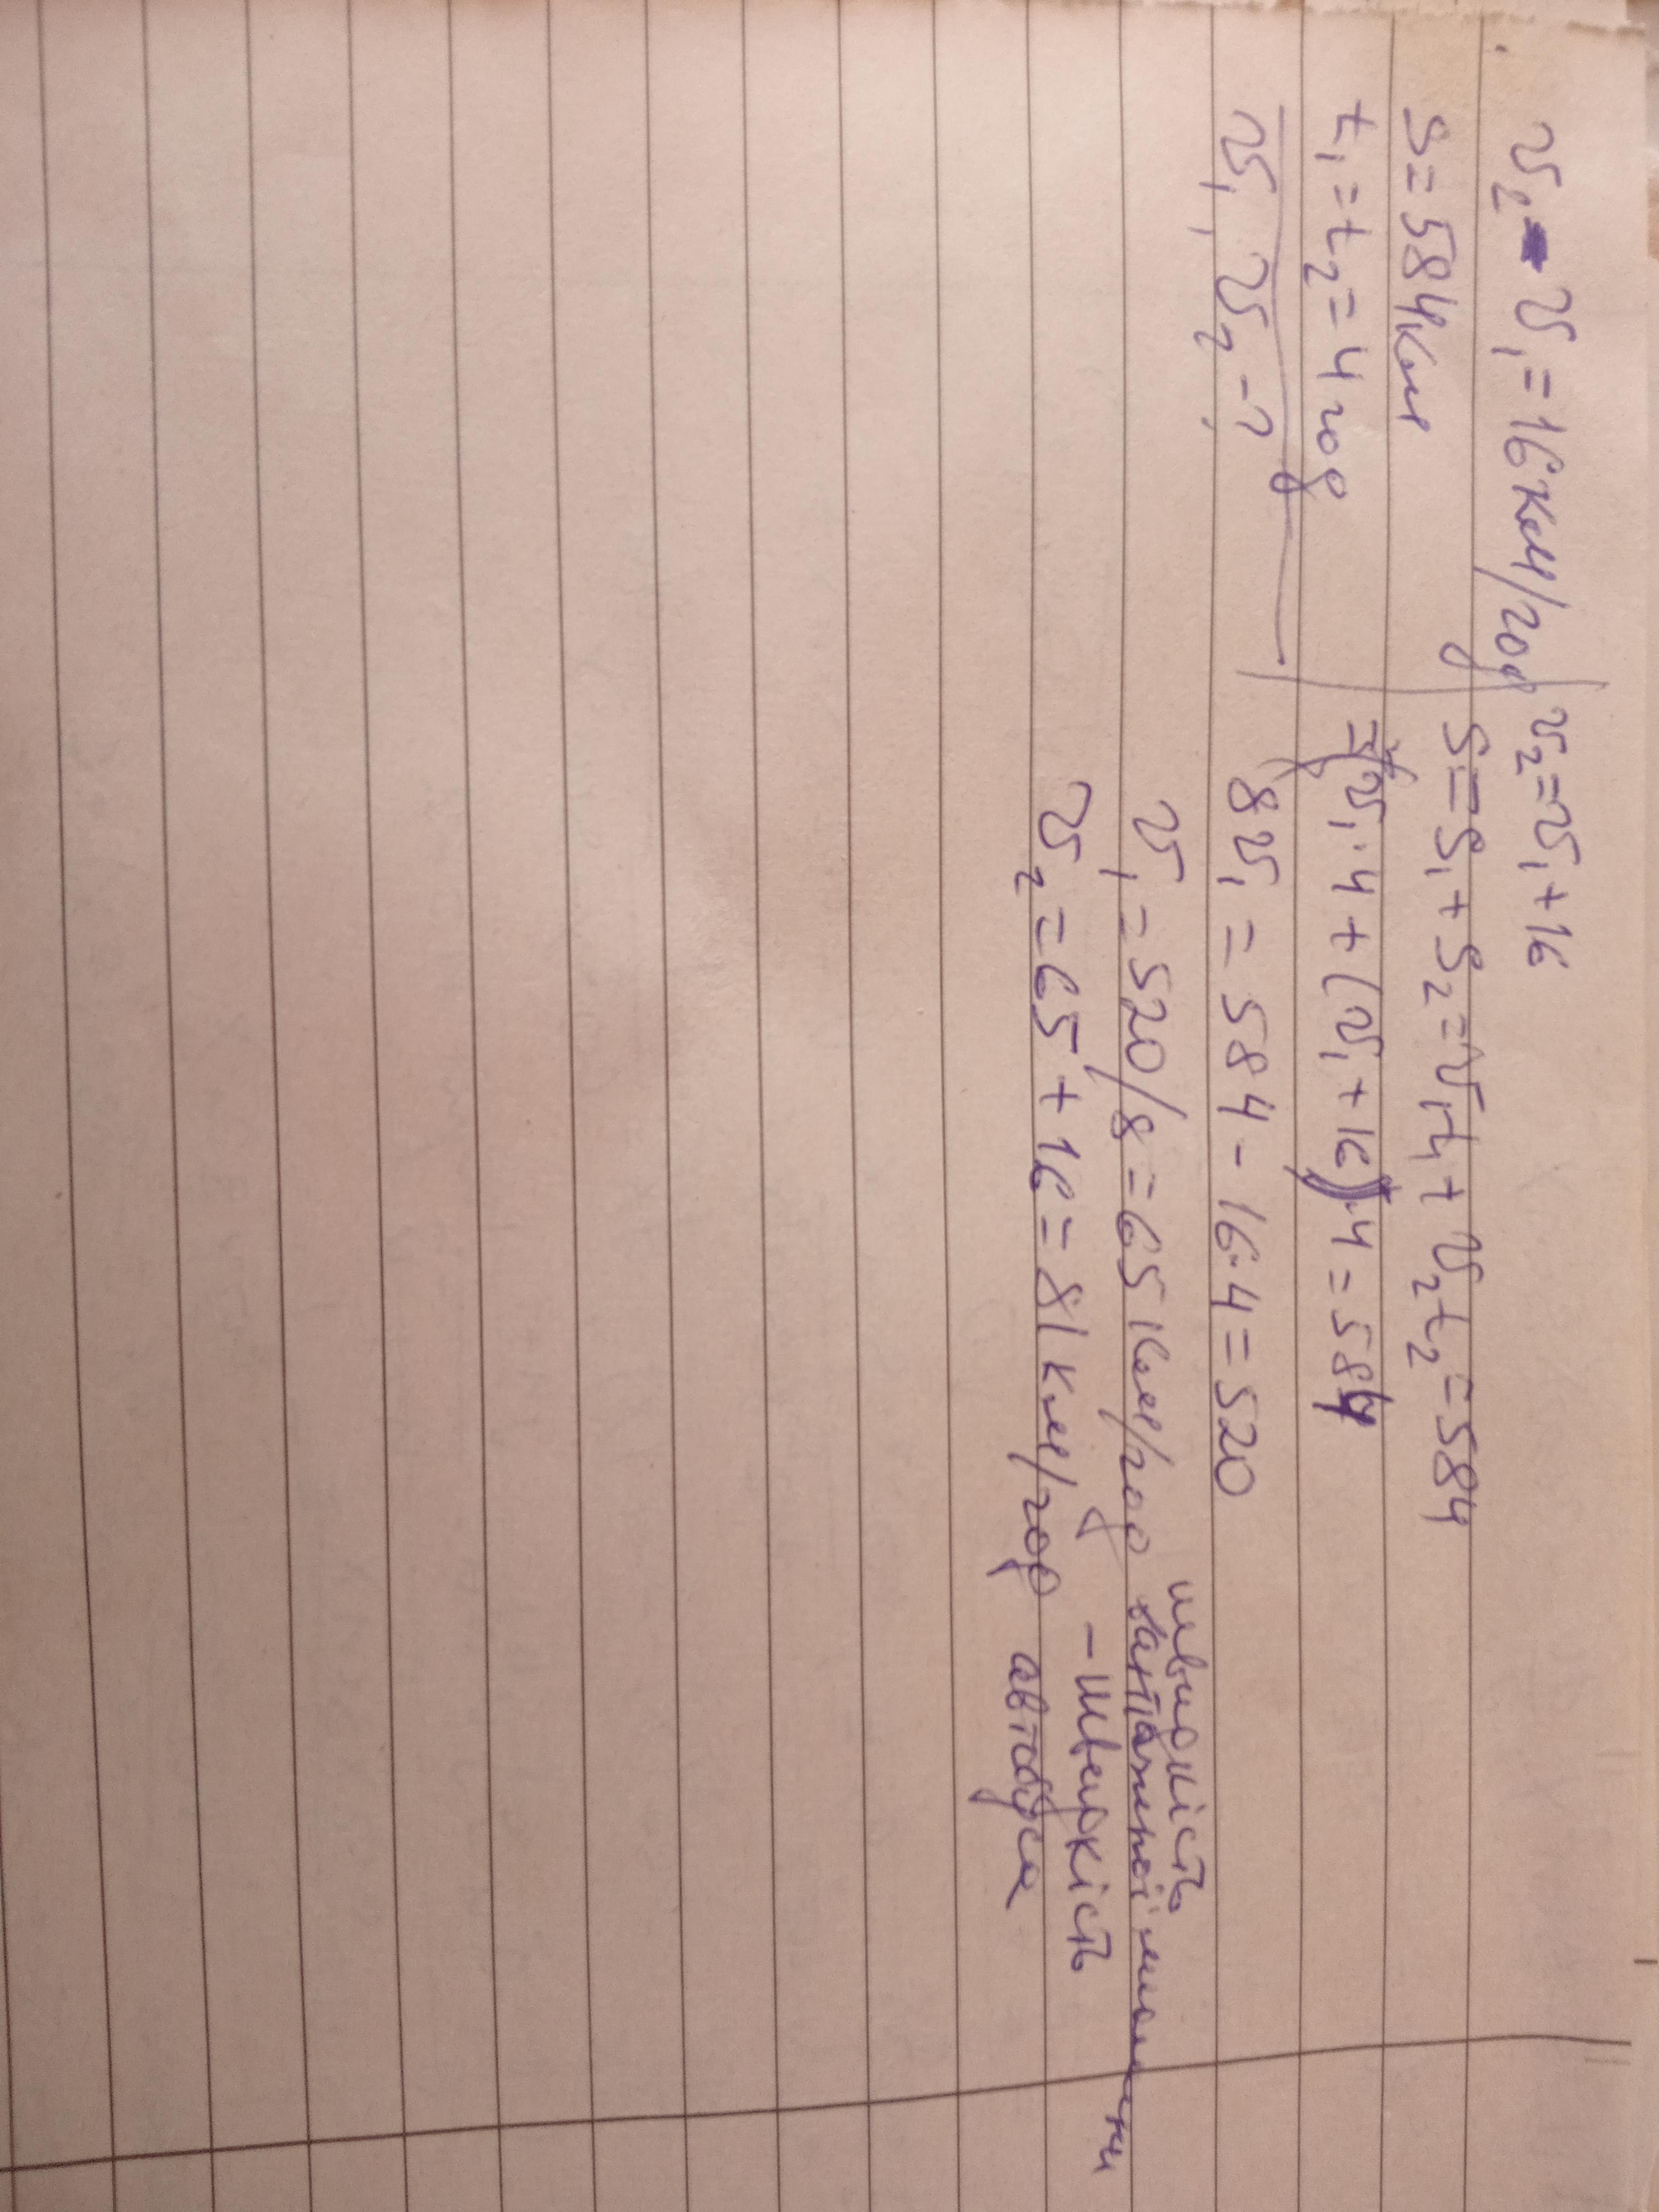 v₂ - v₁ = 16 км/год
S = 584 км
t₁ = t₂ = 4 год
v₁, v₂ - ?
v₂ = v₁ + 16
S = S₁ + S₂ = v₁t₁ + v₂t₂ = 584
= v₁ · 4 + (v₁ + 16) · 4 = 584
8v₁ = 584 - 16 · 4 = 520
v₁ = 520/8 = 65 км/год швидкість
вантажної машини
v₂ = 65 + 16 = 81 км/год - швидкість
автобуса